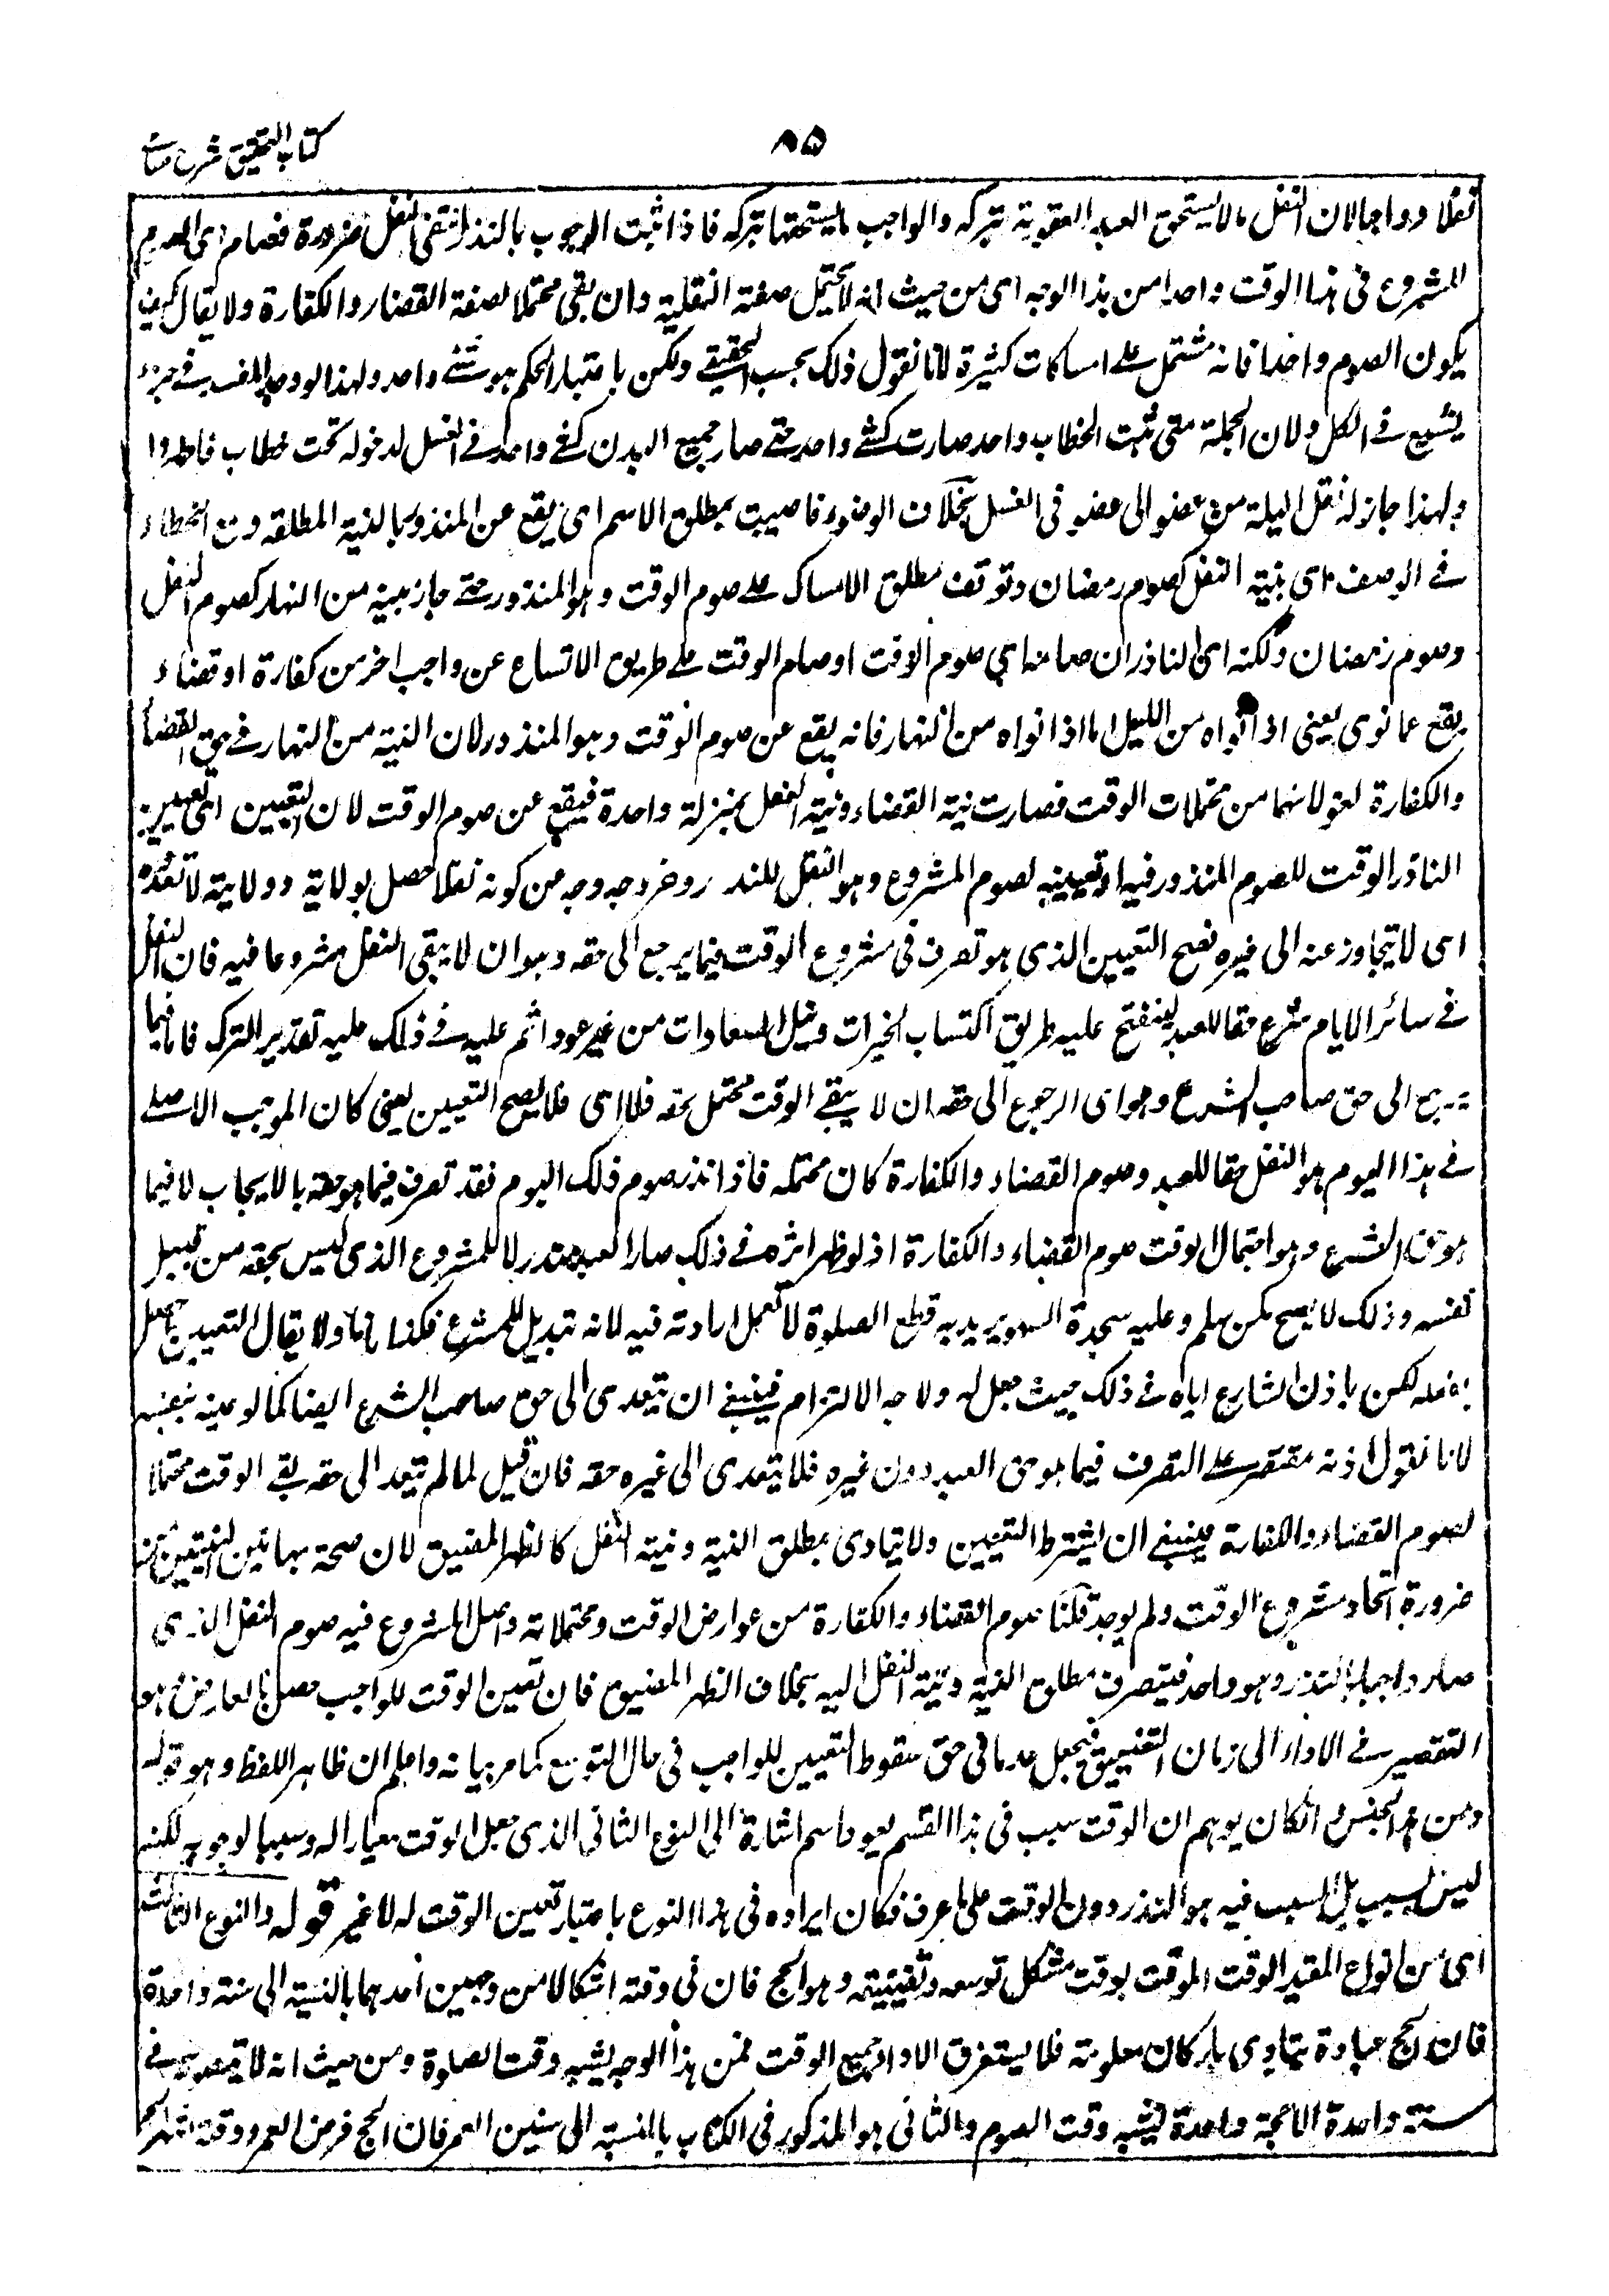 كتاب التحقيق شرح
٨٥
نفلا وواجبا لان النفل ما لا يستحق العبد العقوبة بتركه والواجب ما يستحقها بتركه فاذا ثبت الوجوب بالنذر انتفى النفل ضرورة فصام اى الصوم
المشروع فى هذا الوقت واحدا من هذا الوجه اى من حيث انه لا يحتمل صفة النفلية وان بقى محتملا لصفة القضاء والكفارة ولا يقال كيف
يكون الصوم واحدا فانه مشتمل على امساكات كثيرة لانا نقول ذلك بحسب الحقيقة ولكن باعتبار الحكم هو شئ واحد ولهذا لو وجد المفسد فى جزء
يشيع فى الكل ولان الجملة متى ثبت الخطاب واحد صارت كشئ واحد حتى صار جميع البدن كشئ واحد فى الغسل لدخوله تحت خطاب فاطهروا
ولهذا جاز له نقل البلة من عضو الى عضو فى الغسل بخلاف الوضوء فاصيب بمطلق الاسم اى يقع عن المنذور بالنية المطلقة ومع الخطاء
فى الوصف اى بنية النفل كصوم رمضان وتوقف مطلق الامساك على صوم الوقت وهو المنذور حتى جاز بنية من النهار كصوم النفل
وصوم رمضان ولكنه اى الناذر ان صامه اى صوم الوقت او صام الوقت على طريق الاتساع عن واجب اخر من كفارة او قضاء
يقع عما نوى يعنى اذا نواه من الليل اما اذا نواه من النهار فانه يقع عن صوم الوقت وهو المنذور لان النية من النهار فى حق القضاء
والكفارة لغو لانهما من محتملات الوقت فصارت نية القضاء ونية النفل بمنزلة واحدة فيقع عن صوم الوقت لان التعيين اى تعيين
الناذر الوقت للصوم المنذور فيه او تعيينه لصوم المشروع وهو النفل للنذر وخروجه من كونه نفلا حصل بولايته وولايته لا تعدوه
اى لا تتجاوز عنه الى غيره فصح التعيين الذى هو تصرف فى مشروع الوقت فيما يرجع الى حقه وهو ان لا يبقى النفل مشروعا فيه فان النفل
فى سائر الايام شرع حقا للعبد لينفتح عليه طريق اكتساب الخيرات ونيل السعادات من غير عود اثم عليه فى ذلك عليه تقدير الترك فاما فيما
يرجع الى حق صاحب الشرع وهو اى الرجوع الى حقه ان لا يبقى الوقت محتمل حقه فلا اى فلا يصح التعيين يعنى كان الموجب الاصلى
فى هذا اليوم هو النفل حقا للعبد وصوم القضاء والكفارة كان محتمله فاذا نذر صوم ذلك اليوم فقد تصرف فيما هو حقه بالايجاب لا فيما
هو حق الشرع وهو احتمال الوقت صوم القضاء والكفارة اذ لو ظهر اثره فى ذلك صار العبد مبدلا للمشروع الذى ليس بحقه من قبل
نفسه وذلك لا يصح كمن سلم وعليه سجدة السهو يريد به قطع الصلوة لا تعمل ارادته فيه لانه تبديل للمشروع فكذا ولا يقال التعيين حصل
لكن باذن الشارع اياه فى ذلك حيث جعل له ولاية الالتزام فينبغى ان يتعدى الى حق صاحب الشرع ايضا كما لو عينه بنفسه
لانا نقول اذنه مقتصر على التصرف فيما هو حق العبد دون غيره فلا يتعدى الى غيره حقه فان قيل لما لم يتعد الى حقه بقى الوقت محتملا
لصوم القضاء والكفارة فينبغى ان يشترط التعيين ولا يتادى بمطلق النية ونية النفل كالظهر المضيق لان صحته بهاتين النيتين
ضرورة اتحاد مشروع الوقت ولم يوجد قلنا صوم القضاء والكفارة من عوارض الوقت ومحتملاته واصل المشروع فيه صوم النفل الذى
صار واجبا بالنذر وهو واحد فينصرف مطلق النية ونية النفل اليه بخلاف الظهر المضيق فان تعين الوقت للواجب حصل بالعارض وهو
التقصير فى الاداء الى زمان التضييق فيجعل عدما فى حق سقوط التعيين للواجب فى حال التوسع كما مر بيانه واعلم ان ظاهر اللفظ وهو قوله
ومن هذا الجنس وان كان يوهم ان الوقت سبب فى هذا القسم بعود اسم اشارة الى النوع الثانى الذى جعل الوقت معيارا له وسببا لوجوبه لكنه
ليس بسبب بل السبب فيه هو النذر دون الوقت على ما عرف فكان ايراده فى هذا النوع باعتبار تعين الوقت له لا غير قوله والنوع الثالث
اى من انواع المقيد الوقت الموقت بوقت مشكل توسعه وتضييقه وهو الحج فان فى وقته اشكالا من وجهين احدهما بالنسبة الى سنة واحدة
فان الحج عبادة يتادى باركان معلومة فلا يستغرق الاداء جميع الوقت فمن هذا الوجه يشبه وقت الصلوة ومن حيث انه لا يتصور فى
سنة واحدة الا حجة واحدة يشبه وقت الصوم والثانى هو المذكور فى الكتاب بالنسبة الى سنين العمر فان الحج فرض العمر ووقته اشهر الحج